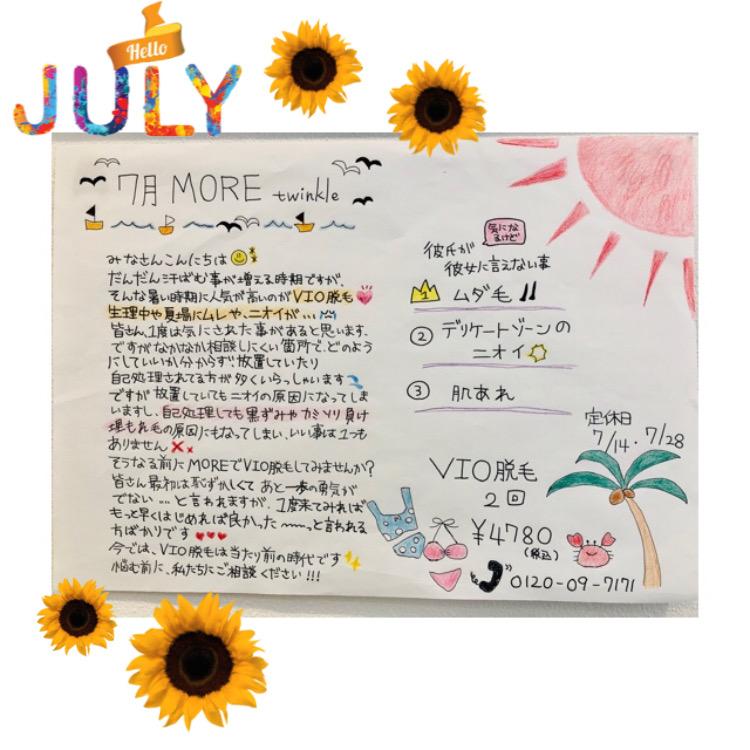 Hello
JULY
7月 MORE twinkle
みなさんこんにちは
だんだん汗ばむ事が増える時期ですが、
そんな暑い時期に人気が高いのがVIO脱毛
生理中や夏場にムレや、ニオイが…
皆さん、1度は気にされた事があると思います、
ですがなかなか相談しにくい箇所で、どのよう
にしていいか分からず放置していたり
自己処理されてる方が多くいらっしゃいます
ですが放置していてもニオイの原因になってしま
いますし、自己処理しても黒ずみやカミソリ負け
埋もれ毛の原因にもなってしまい、いい事は1つも
ありません
そうなる前にMOREでVIO脱毛してみませんか?
皆さん最初は恥ずかしくてあと一歩の勇気が
でない…と言われますが、1度来てみれば
もっと早くはじめれば良かった〜〜っと言われる
方ばかりです
今では、VIO脱毛は当たり前の時代です
悩む前に、私たちにご相談ください!!!
気にな
るけど
彼氏が
彼女に言えない事
1 ムダ毛
② デリケートゾーンの
ニオイ
③ 肌あれ
定休日
7/14・7/28
VIO脱毛
2回
¥4780
(税込)
0120-09-7171